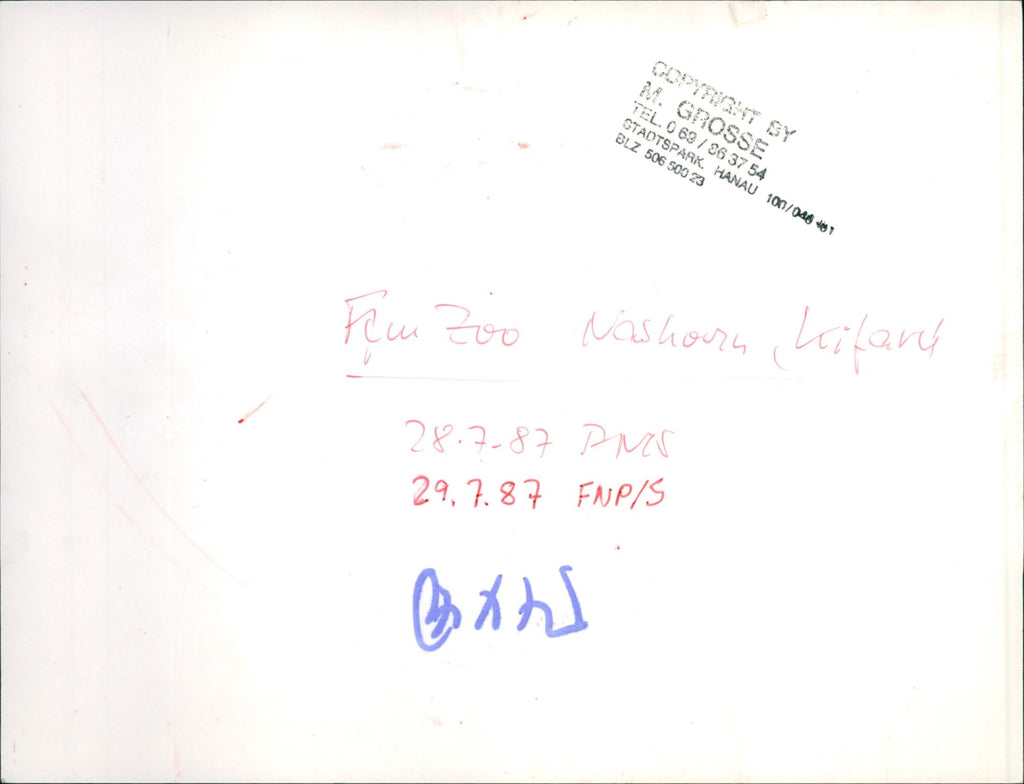 COPYRIGHT BY
M. GROSSE
TEL. 0 69 / 86 37 54
STADTSPARK. HANAU 100/048
BLZ 506 500 23
Ffm Zoo Nashorn, Kifaru
28.7-87
29.7.87 FNP/S